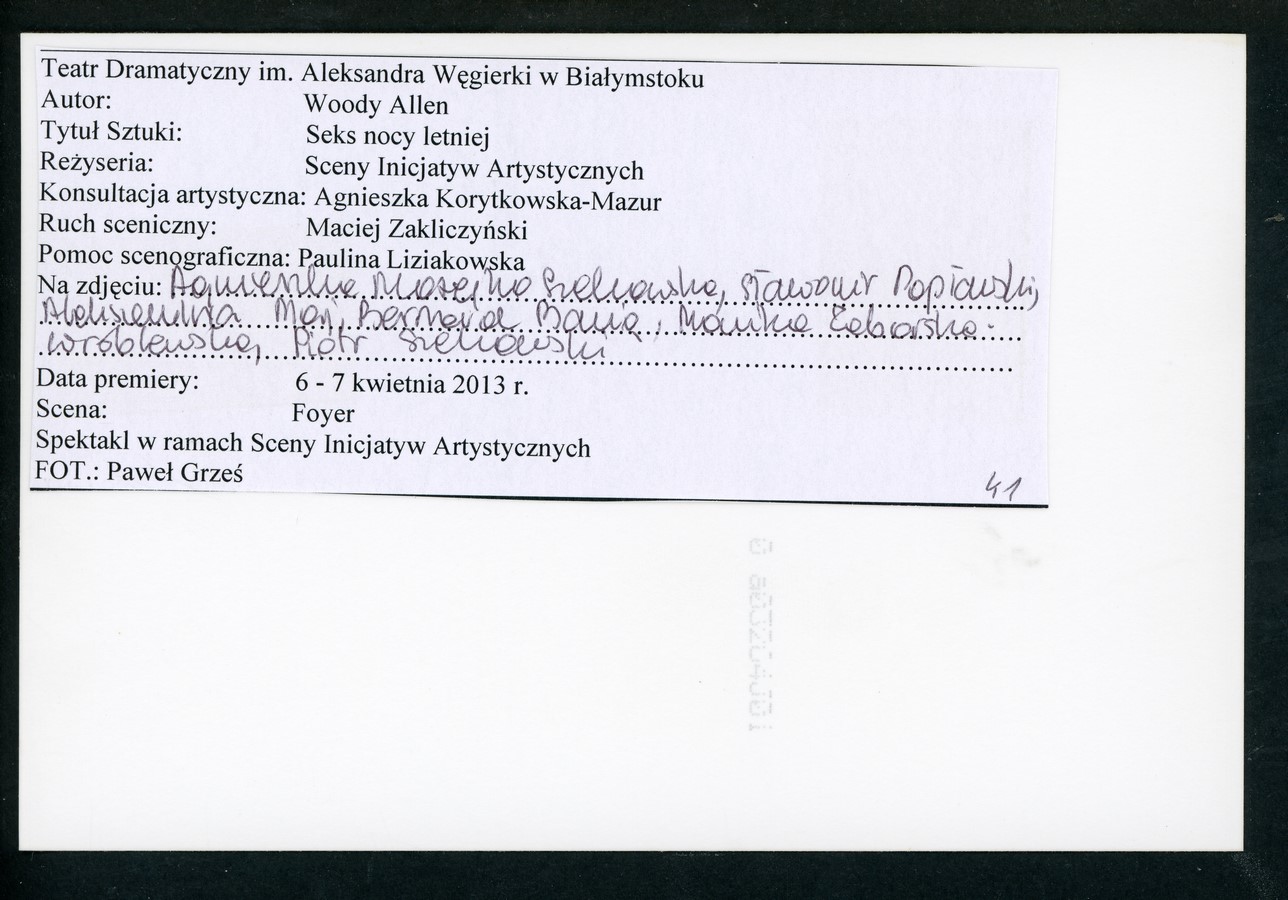 Teatr Dramatyczny im. Aleksandra Węgierki w Białymstoku
Autor: Woody Allen
Tytuł Sztuki: Seks nocy letniej
Reżyseria: Sceny Inicjatyw Artystycznych
Konsultacja artystyczna: Agnieszka Korytkowska-Mazur
Ruch sceniczny: Maciej Zakliczyński
Pomoc scenograficzna: Paulina Liziakowska
Na zdjęciu: Agnieszka Możejko Szekowska, Sławomir Popławski,
Aleksandra Maj, Bernard Bania, Monika Zaborska-
Wróblewska, Piotr Szekowski
Data premiery: 6 - 7 kwietnia 2013 r.
Scena: Foyer
Spektakl w ramach Sceny Inicjatyw Artystycznych
FOT.: Paweł Grześ
41